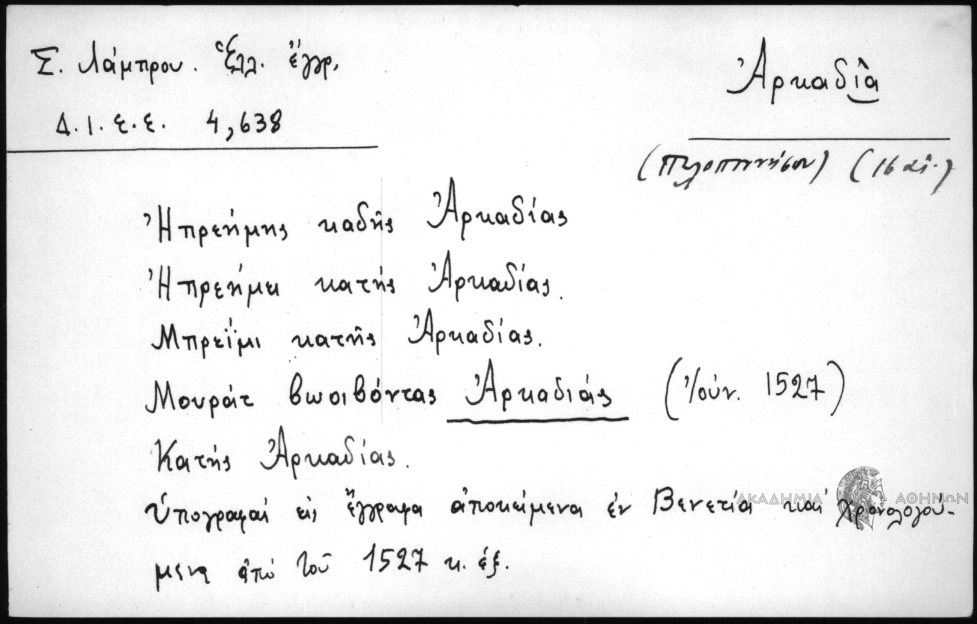 Σ. Λάμπρου. Ἑλλ. ἔγγρ.
Δ.Ι.Ε.Ε. 4,638
Ἀρκαδιὰ
(Πελοποννήσου) (16 αἰ.)
Ἡπρεήμης καδῆς Ἀρκαδίας
Ἡπρεήμι κατής Ἀρκαδίας.
Μπρεΐμι κατῆς Ἀρκαδίας.
Μουράτ βωοιβόντας Ἀρκαδιάς (Ἰούν. 1527)
Κατής Ἀρκαδίας.
ὑπογραφαί εἰς ἔγγραφα ἀποκείμενα ἐν Βενετίᾳ καί χρονολογού-
μενα ἀπό τοῦ 1527 κ. ἑξ.
ΑΚΑΔΗΜΙΑ ΑΘΗΝΩΝ